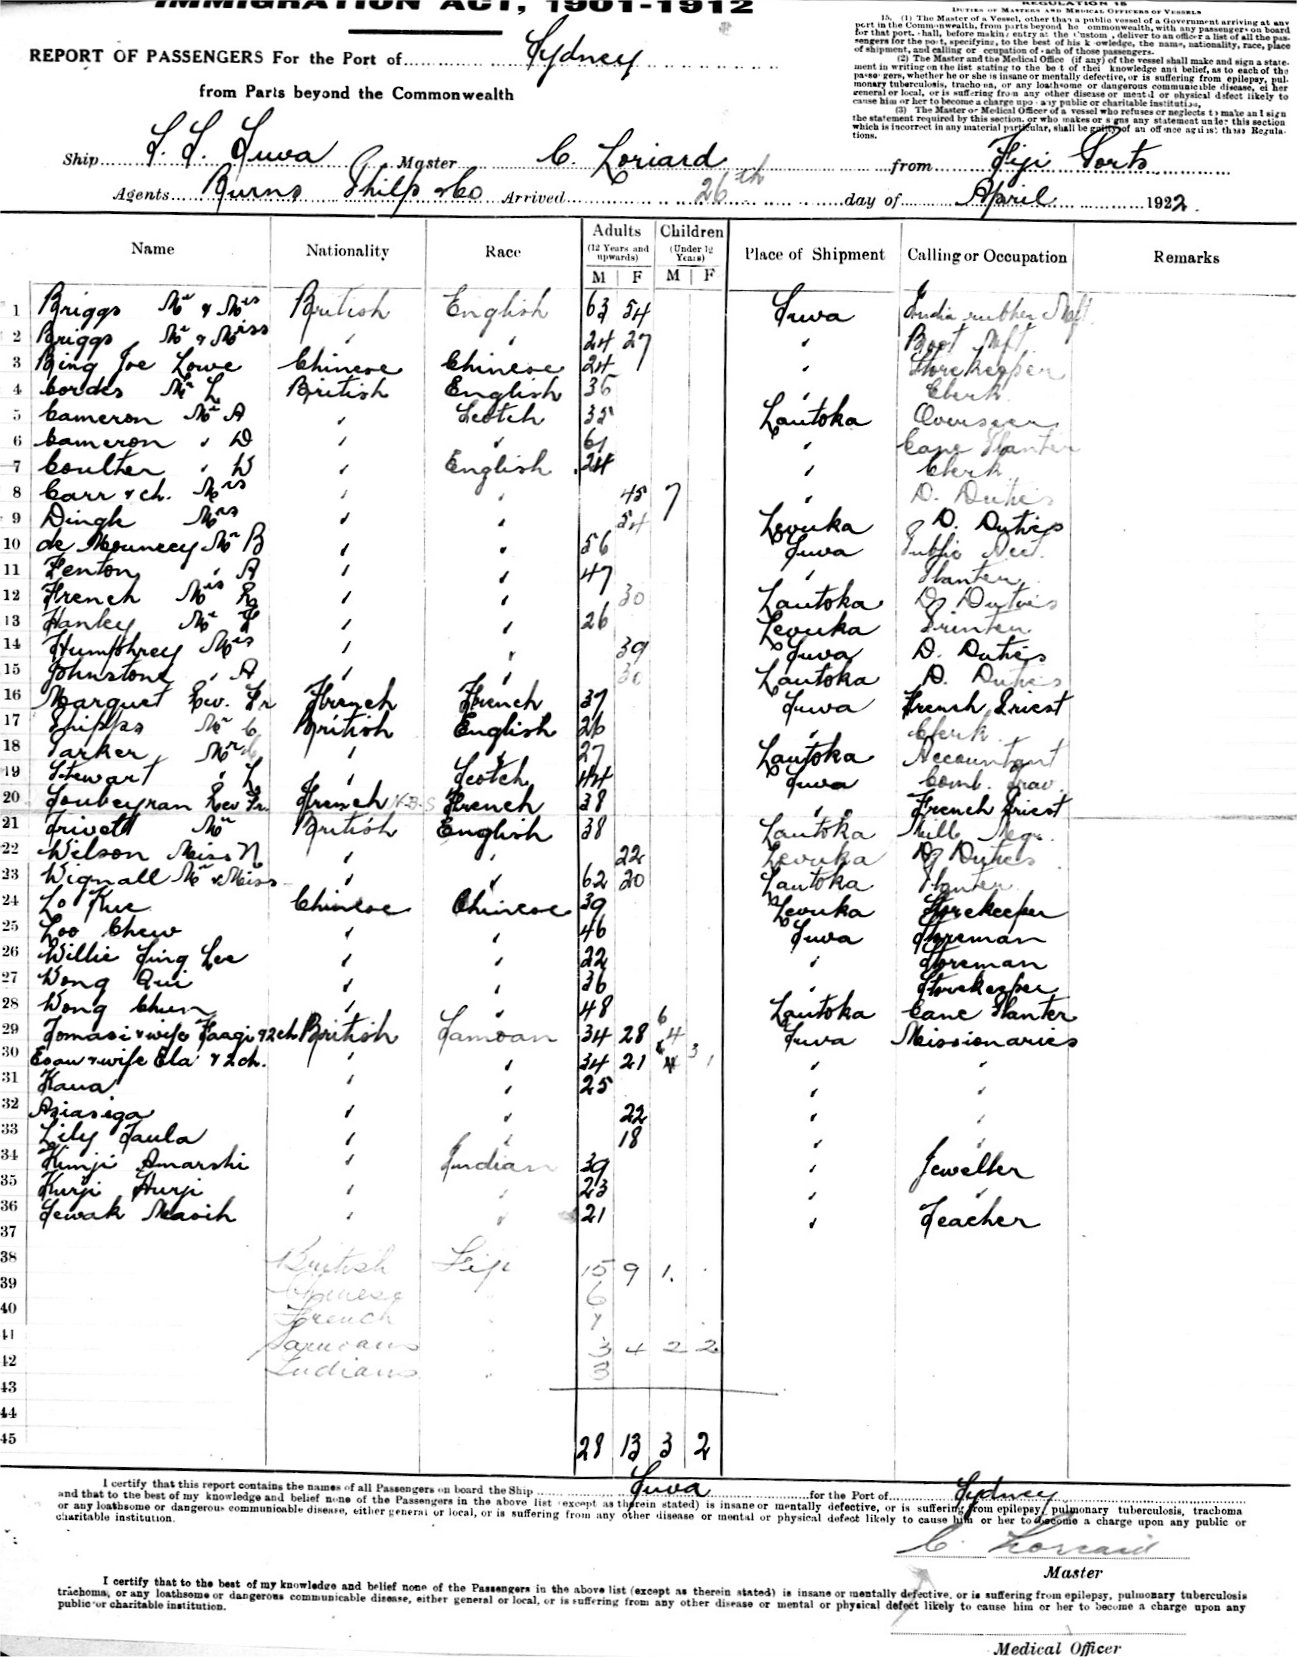 IMMIGRATION ACT, 1901-1912
REGULATION 15
DUTIES OF MASTERS AND MEDICAL OFFICERS OF VESSELS
15. (1) The Master of a Vessel, other than a public vessel of a Government arriving at any
port in the Commonwealth, from parts beyond he ommonwealth, with any passengers on board
for that port, shall, before making entry at the ustom, deliver to an officer a list of all the pas-
sengers for the port, specifying, to the best of his k owledge, the name, nationality, race, place
of shipment, and calling or occupation of each of those passengers.
(2) The Master and the Medical Office (if any) of the vessel shall make and sign a state-
ment in writing on the list stating to the be t of thei knowledge and belief, as to each of the
passengers, whether he or she is insane or mentally defective, or is suffering from epilepsy, pul-
monary tuberculosis, trachoma, or any loathsome or dangerous communicable disease, ei her
general or local, or is suffering from any other disease or mental or physical defect likely to
cause him or her to become a charge upon any public or charitable institution,
(3) The Master or Medical Officer of a vessel who refuses or neglects to make and sign
the statement required by this section, or who makes or signs any statement under this section
which is incorrect in any material particular, shall be guilty of an offence against these Regula-
tions.
REPORT OF PASSENGERS For the Port of Sydney
from Parts beyond the Commonwealth
Ship S. S. Suva Master C. Loriard from Fiji Ports
Agents Burns Philp & Co Arrived 26th day of April 1922.
Name Nationality Race Adults (12 Years and upwards) M F Children (Under 12 Years) M F Place of Shipment Calling or Occupation Remarks
1 Briggs Mr & Mrs British English 63 54 Suva India rubber Mft
2 Briggs Mr & Miss " " 24 27 " Boot Mft
3 Bing Joe Lowe Chinese Chinese 24 " Storekeeper
4 Cordes Mr L British English 35 " Clerk
5 Cameron Mr A " Scotch 35 Lautoka Overseer
6 Cameron " D " " 61 " Cane Planter
7 Coulter " W " English 24 " Clerk
8 Carr & ch. Mrs " " 45 7 " D. Duties
9 Dingle Mrs " " 54 Levuka D. Duties
10 de Mouncey Mr B " " 56 Suva Public
11 Fenton " A " " 47 " Planter
12 French Mrs " " 30 Lautoka D. Duties
13 Hanley Mr " " 26 Levuka Printer
14 Humphrey Mrs " " 39 Suva D. Duties
15 Johnstone " A " " 30 Lautoka D. Duties
16 Marquet Rev. Fr French French 37 Suva French Priest
17 Phipps Mr C British English 26 " Clerk
18 Parker Mr " " 27 Lautoka Accountant
19 Stewart " L " Scotch 44 Suva Comb. Trav.
20 Soubeyran Rev Fr. French N.B.S French 38 " " French Priest
21 Trivett Mr British English 38 Lautoka Mill Mgr.
22 Wilson Miss N " " 22 Levuka D. Duties
23 Wignall Mr & Miss " " 62 20 Lautoka Planter
24 Lo Kue Chinese Chinese 39 Levuka Storekeeper
25 Loo Chew " " 46 Suva Storeman
26 Willie Sing Lee " " 22 " Storeman
27 Wong Qui " " 36 Storekeeper
28 Wong Chun " " 48 Lautoka Cane Planter
29 Tomasi & wife Faagi & 2ch British Samoan 34 28 6 4 Suva Missionaries
30 Esau & wife Ela & 2 ch. " " 34 21 4 3 " "
31 Kaua " " 25 " "
32 Asiasiga " " 22 " "
33 Lily Taula " " 18 " "
34 Kimji Amarshi " Indian 39 " Jeweller
35 Kurji Hurji " " 23 " "
36 Sewak Masih " " 21 " Teacher
37
38 British Fiji 15 9 1.
39 Chinese 6
40 French 1
41 Samoans 3 4 2 2
42 Indians 3
43
44
45 28 13 3 2
I certify that this report contains the names of all Passengers on board the Ship Suva for the Port of Sydney
and that to the best of my knowledge and belief none of the Passengers in the above list (except as therein stated) is insane or mentally defective, or is suffering from epilepsy, pulmonary tuberculosis, trachoma
or any loathsome or dangerous communicable disease, either general or local, or is suffering from any other disease or mental or physical defect likely to cause him or her to become a charge upon any public or
charitable institution.
C. Loriard
Master
I certify that to the best of my knowledge and belief none of the Passengers in the above list (except as therein stated) is insane or mentally defective, or is suffering from epilepsy, pulmonary tuberculosis
trachoma, or any loathsome or dangerous communicable disease, either general or local, or is suffering from any other disease or mental or physical defect likely to cause him or her to become a charge upon any
public or charitable institution.
Medical Officer